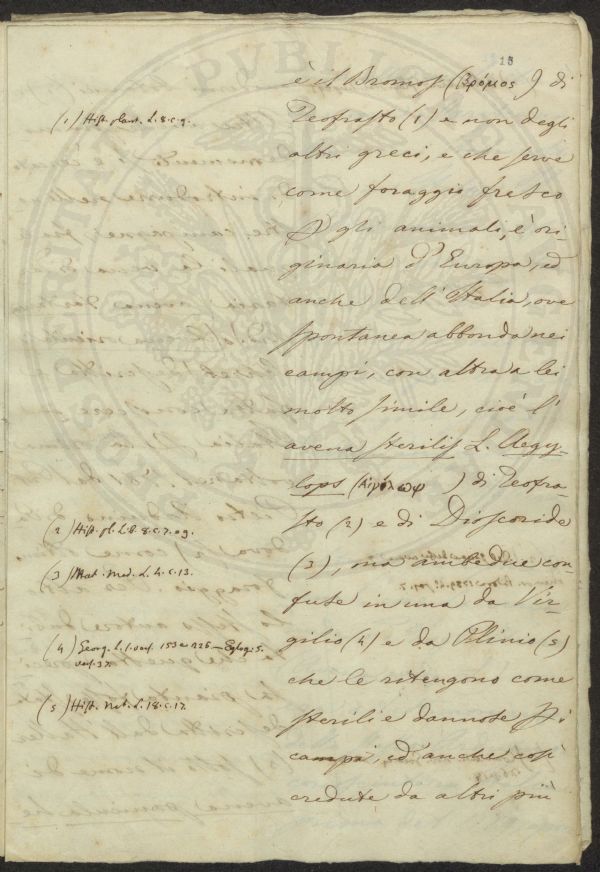 15
è il Bromos (Βρόμος) di
Teofrasto (1) e non degli
altri greci, e che serve
come foraggio fresco
P gli animali, è ori-
ginaria d'Europa, ed
anche dell'Italia, ove
spontanea abbonda nei
campi, con altra a lei
molto simile, cioè l'
avena sterilis L. Aegy-
lops (Αἰγίλωψ) di Teofra-
sto (2) e di Dioscoride
(3), ma ambedue con-
fuse in una da Vir-
gilio (4) e da Plinio (5)
che le ritengono come
sterili e dannose P i
campi, ed anche così
credute da altri più
(1) Hist. plant. L. 8. c. 9.
(2) Hist. pl. L. 8. c. 7. 09.
(3) Mat. Med. L. 4. c. 13.
(4) Georg. L. 1. vers. 153 e 226 — Eglog. 5.
vers. 37.
(5) Hist. Nat. L. 18. c. 17.
PVBLICAE